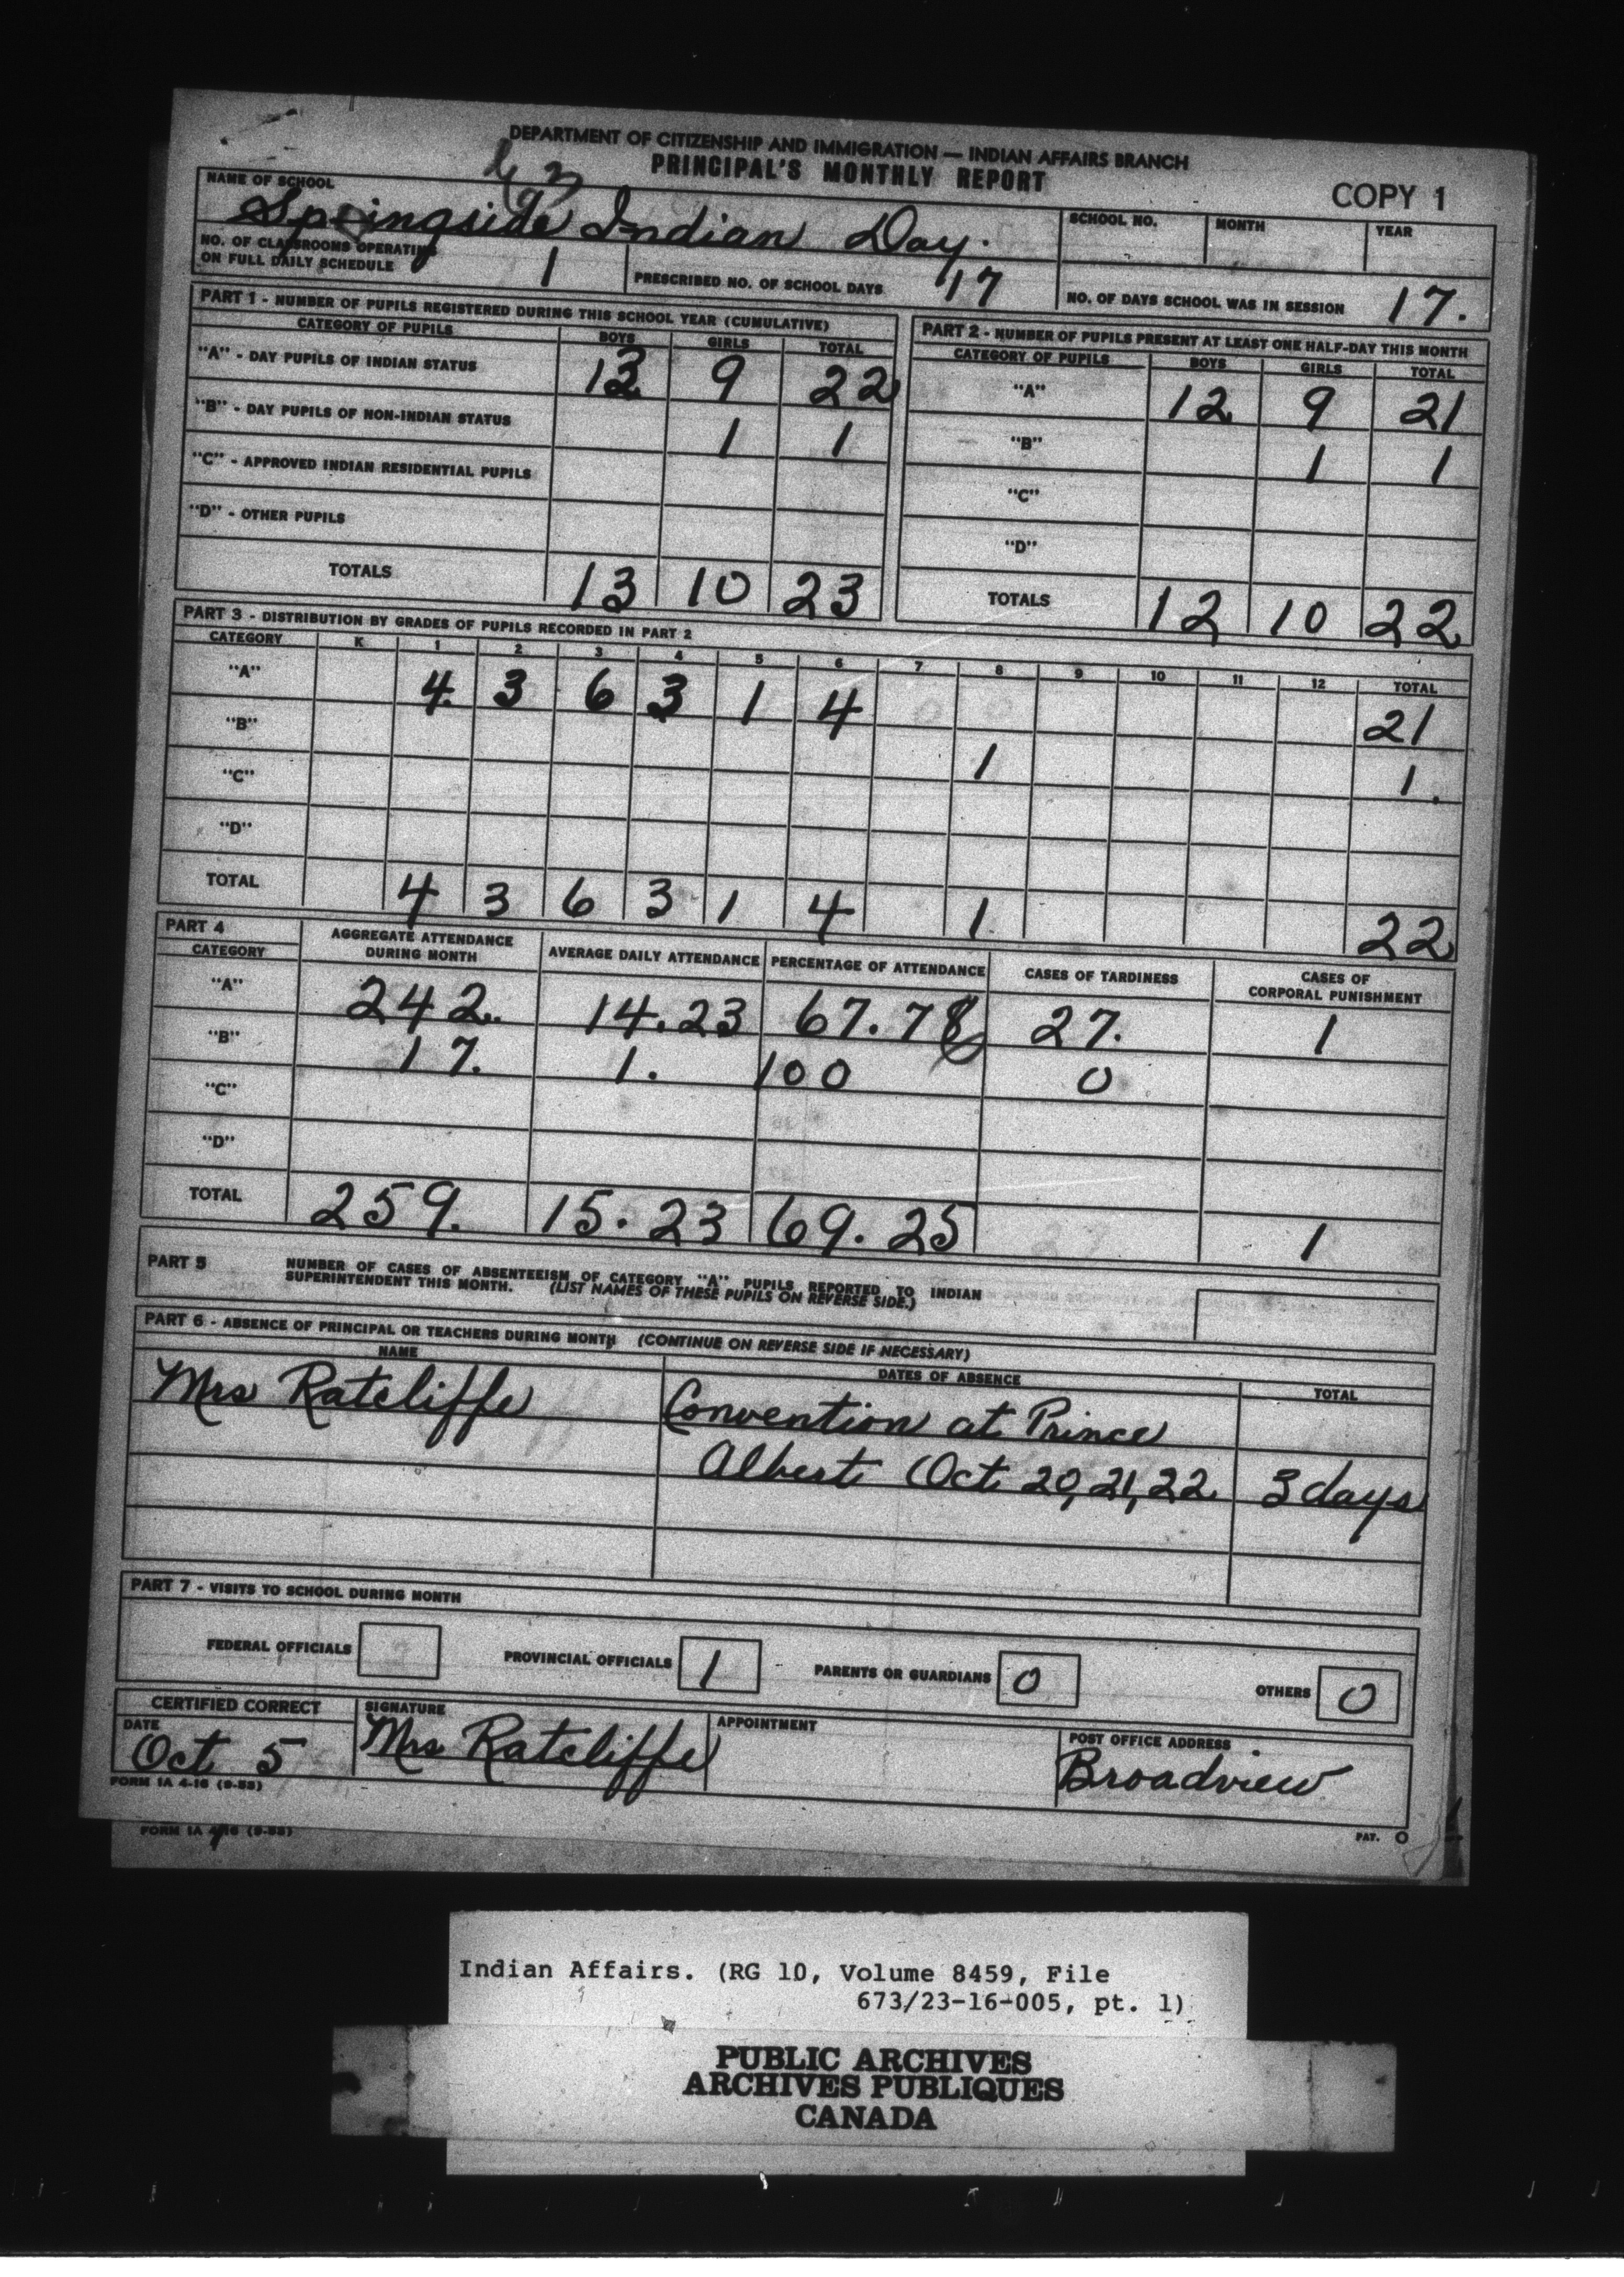 DEPARTMENT OF CITIZENSHIP AND IMMIGRATION — INDIAN AFFAIRS BRANCH
PRINCIPAL'S MONTHLY REPORT
COPY 1
NAME OF SCHOOL
Springside Indian Day.
SCHOOL NO. MONTH YEAR
NO. OF CLASSROOMS OPERATING
ON FULL DAILY SCHEDULE 1
PRESCRIBED NO. OF SCHOOL DAYS 17
NO. OF DAYS SCHOOL WAS IN SESSION 17.
PART 1 - NUMBER OF PUPILS REGISTERED DURING THIS SCHOOL YEAR (CUMULATIVE)
CATEGORY OF PUPILS BOYS GIRLS TOTAL
"A" - DAY PUPILS OF INDIAN STATUS 13 9 22
"B" - DAY PUPILS OF NON-INDIAN STATUS 1 1
"C" - APPROVED INDIAN RESIDENTIAL PUPILS
"D" - OTHER PUPILS
TOTALS 13 10 23
PART 2 - NUMBER OF PUPILS PRESENT AT LEAST ONE HALF-DAY THIS MONTH
CATEGORY OF PUPILS BOYS GIRLS TOTAL
"A" 12 9 21
"B" 1 1
"C"
"D"
TOTALS 12 10 22
PART 3 - DISTRIBUTION BY GRADES OF PUPILS RECORDED IN PART 2
CATEGORY K 1 2 3 4 5 6 7 8 9 10 11 12 TOTAL
"A" 4 3 6 3 1 4 21
"B" 1 1.
"C"
"D"
TOTAL 4 3 6 3 1 4 1 22
PART 4
CATEGORY
AGGREGATE ATTENDANCE
DURING MONTH
AVERAGE DAILY ATTENDANCE
PERCENTAGE OF ATTENDANCE
CASES OF TARDINESS
CASES OF
CORPORAL PUNISHMENT
"A" 242. 14.23 67.78 27. 1
"B" 17. 1. 100 0
"C"
"D"
TOTAL 259. 15.23 69.25 1
PART 5 NUMBER OF CASES OF ABSENTEEISM OF CATEGORY "A" PUPILS REPORTED TO INDIAN
SUPERINTENDENT THIS MONTH. (LIST NAMES OF THESE PUPILS ON REVERSE SIDE.)
PART 6 - ABSENCE OF PRINCIPAL OR TEACHERS DURING MONTH (CONTINUE ON REVERSE SIDE IF NECESSARY)
NAME DATES OF ABSENCE TOTAL
Mrs Ratcliffe Convention at Prince
Albert Oct 20, 21, 22. 3 days
PART 7 - VISITS TO SCHOOL DURING MONTH
FEDERAL OFFICIALS PROVINCIAL OFFICIALS 1 PARENTS OR GUARDIANS 0 OTHERS 0
CERTIFIED CORRECT SIGNATURE APPOINTMENT POST OFFICE ADDRESS
DATE
Oct 5 Mrs Ratcliffe Broadview
FORM IA 4-16 (9-53)
FORM IA 4-16 (9-53)
PAT. O
Indian Affairs. (RG 10, Volume 8459, File
673/23-16-005, pt. 1)
PUBLIC ARCHIVES
ARCHIVES PUBLIQUES
CANADA